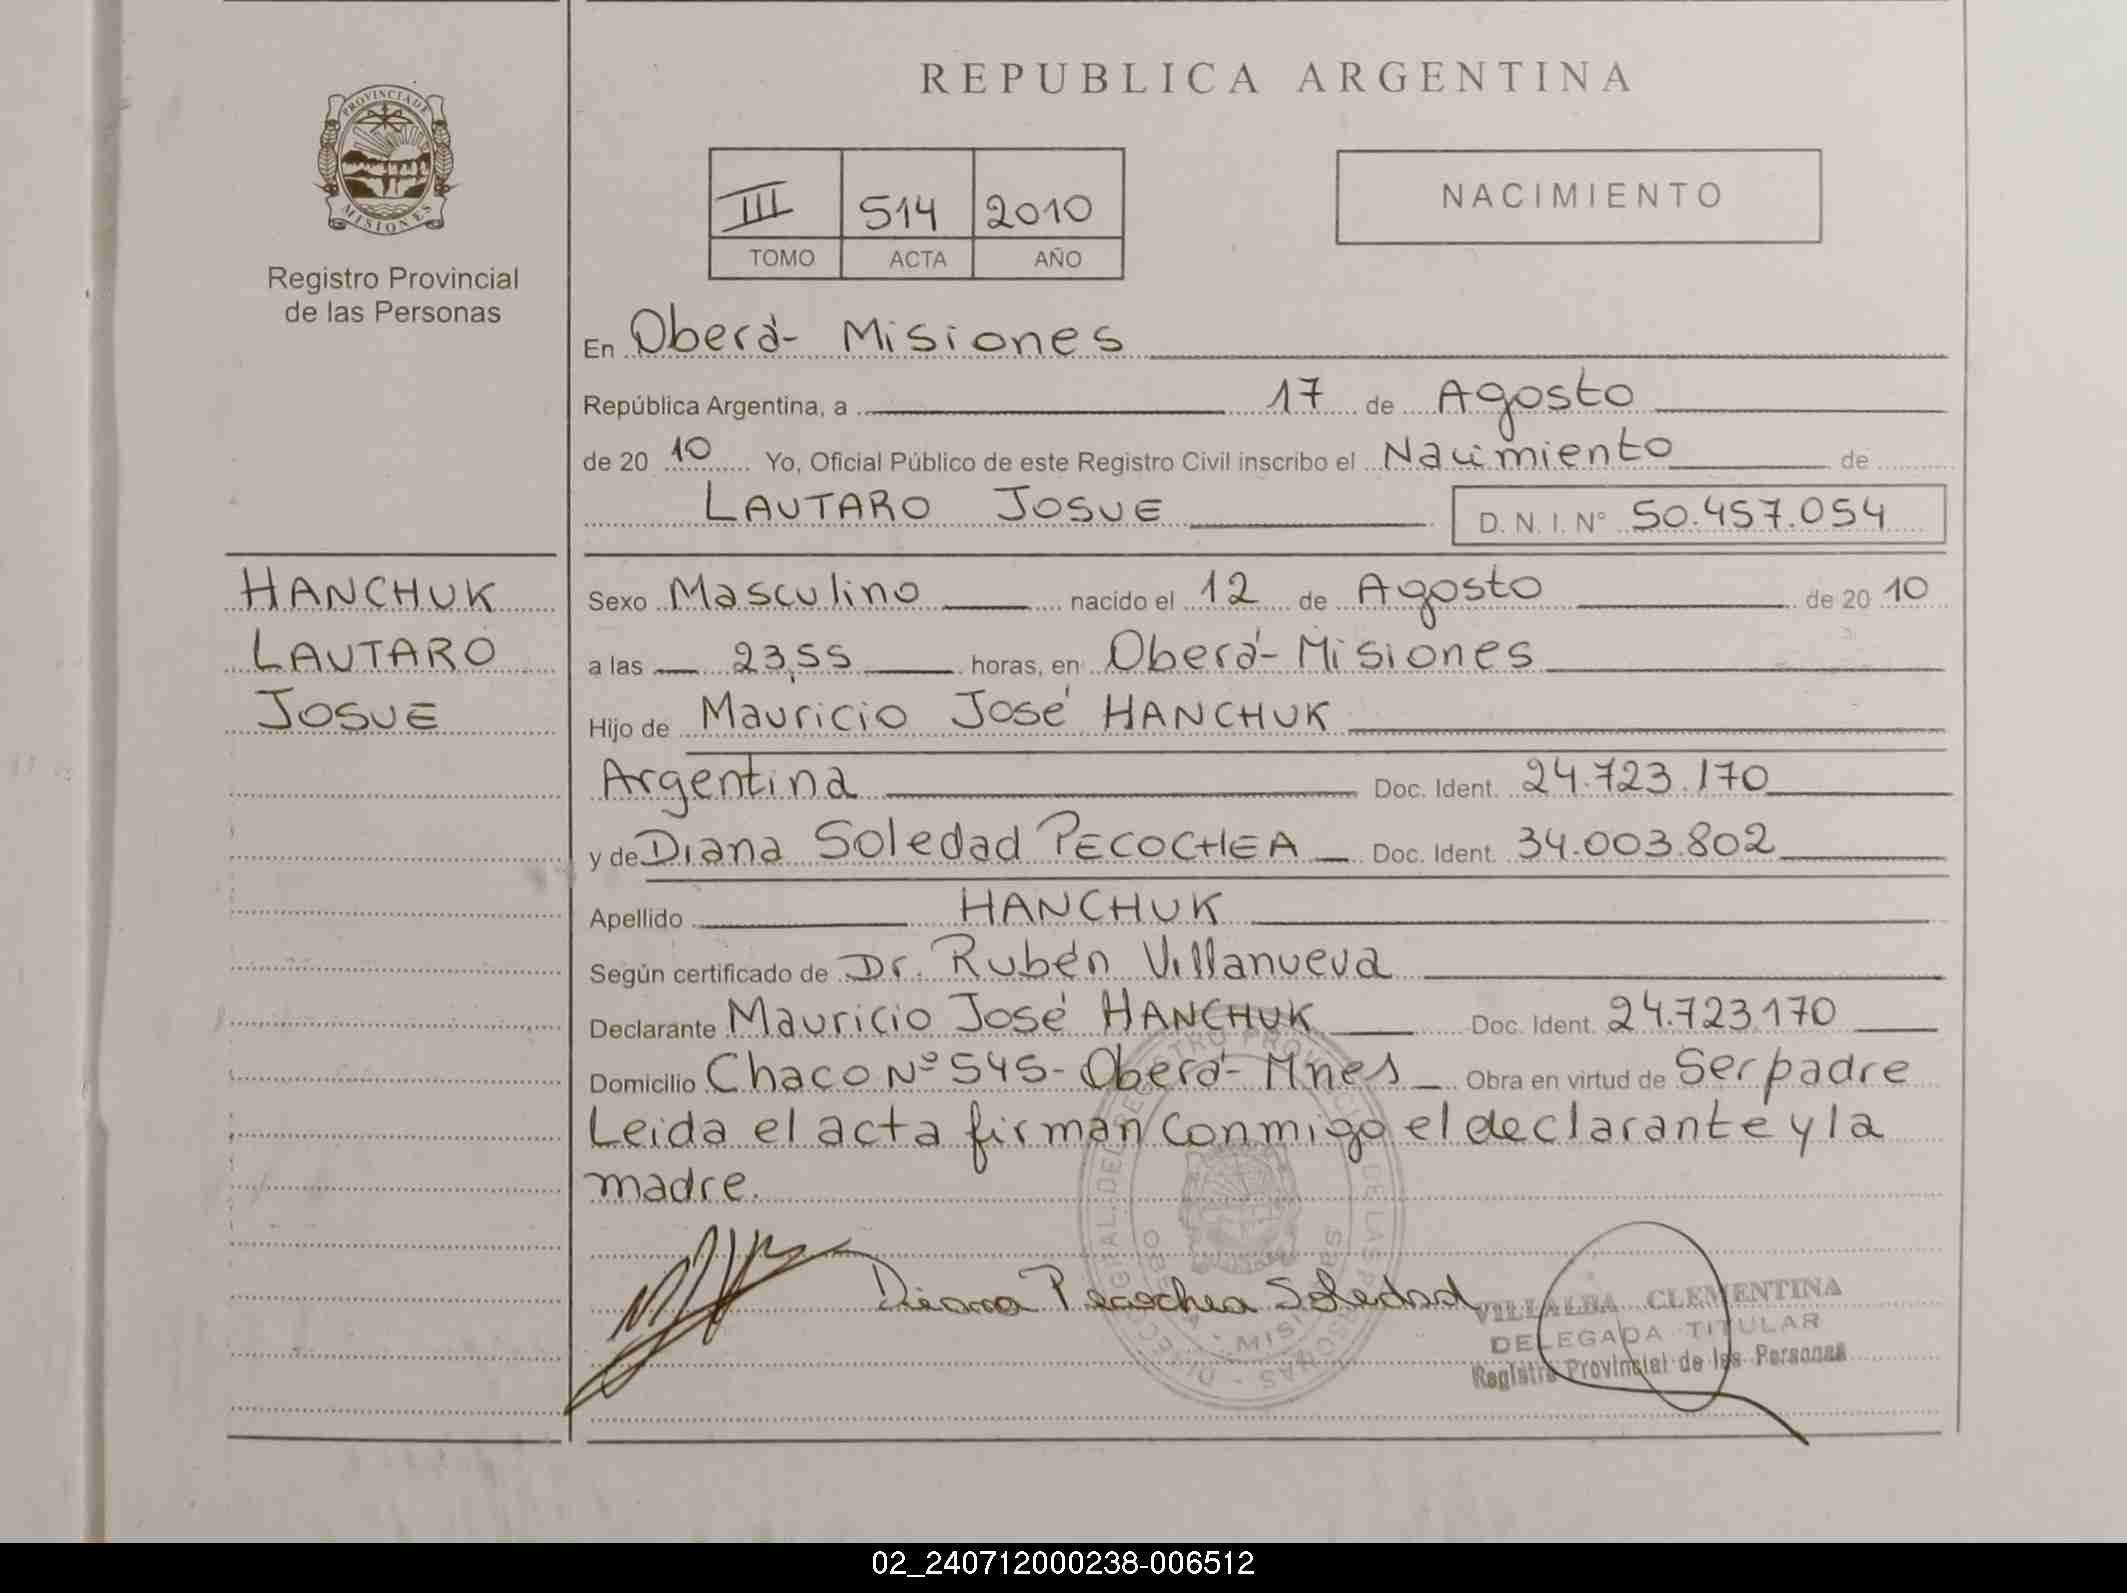 REPUBLICA ARGENTINA
PROVINCIA DE
MISIONES
Registro Provincial
de las Personas
III 514 2010
TOMO ACTA AÑO
NACIMIENTO
En Oberá- Misiones
República Argentina, a 17 de Agosto
de 20 10 Yo, Oficial Público de este Registro Civil inscribo el Nacimiento de
LAUTARO JOSUE D. N. I. N° 50.457.054
HANCHUK
LAUTARO
JOSUE
Sexo Masculino nacido el 12 de Agosto de 20 10
a las 23,55 horas, en Oberá- Misiones
Hijo de Mauricio José HANCHUK
Argentina Doc. Ident. 24.723.170
y de Diana Soledad PECOCHEA Doc. Ident. 34.003.802
Apellido HANCHUK
Según certificado de Dr. Rubén Villanueva
Declarante Mauricio José HANCHUK Doc. Ident. 24.723.170
Domicilio Chaco Nº 545- Oberá- Mnes Obra en virtud de Ser padre
Leida el acta firman conmigo el declarante y la
madre.
Diana Pecochea Soledad
VILLALBA CLEMENTINA
DELEGADA TITULAR
Registro Provincial de las Personas
02_240712000238-006512